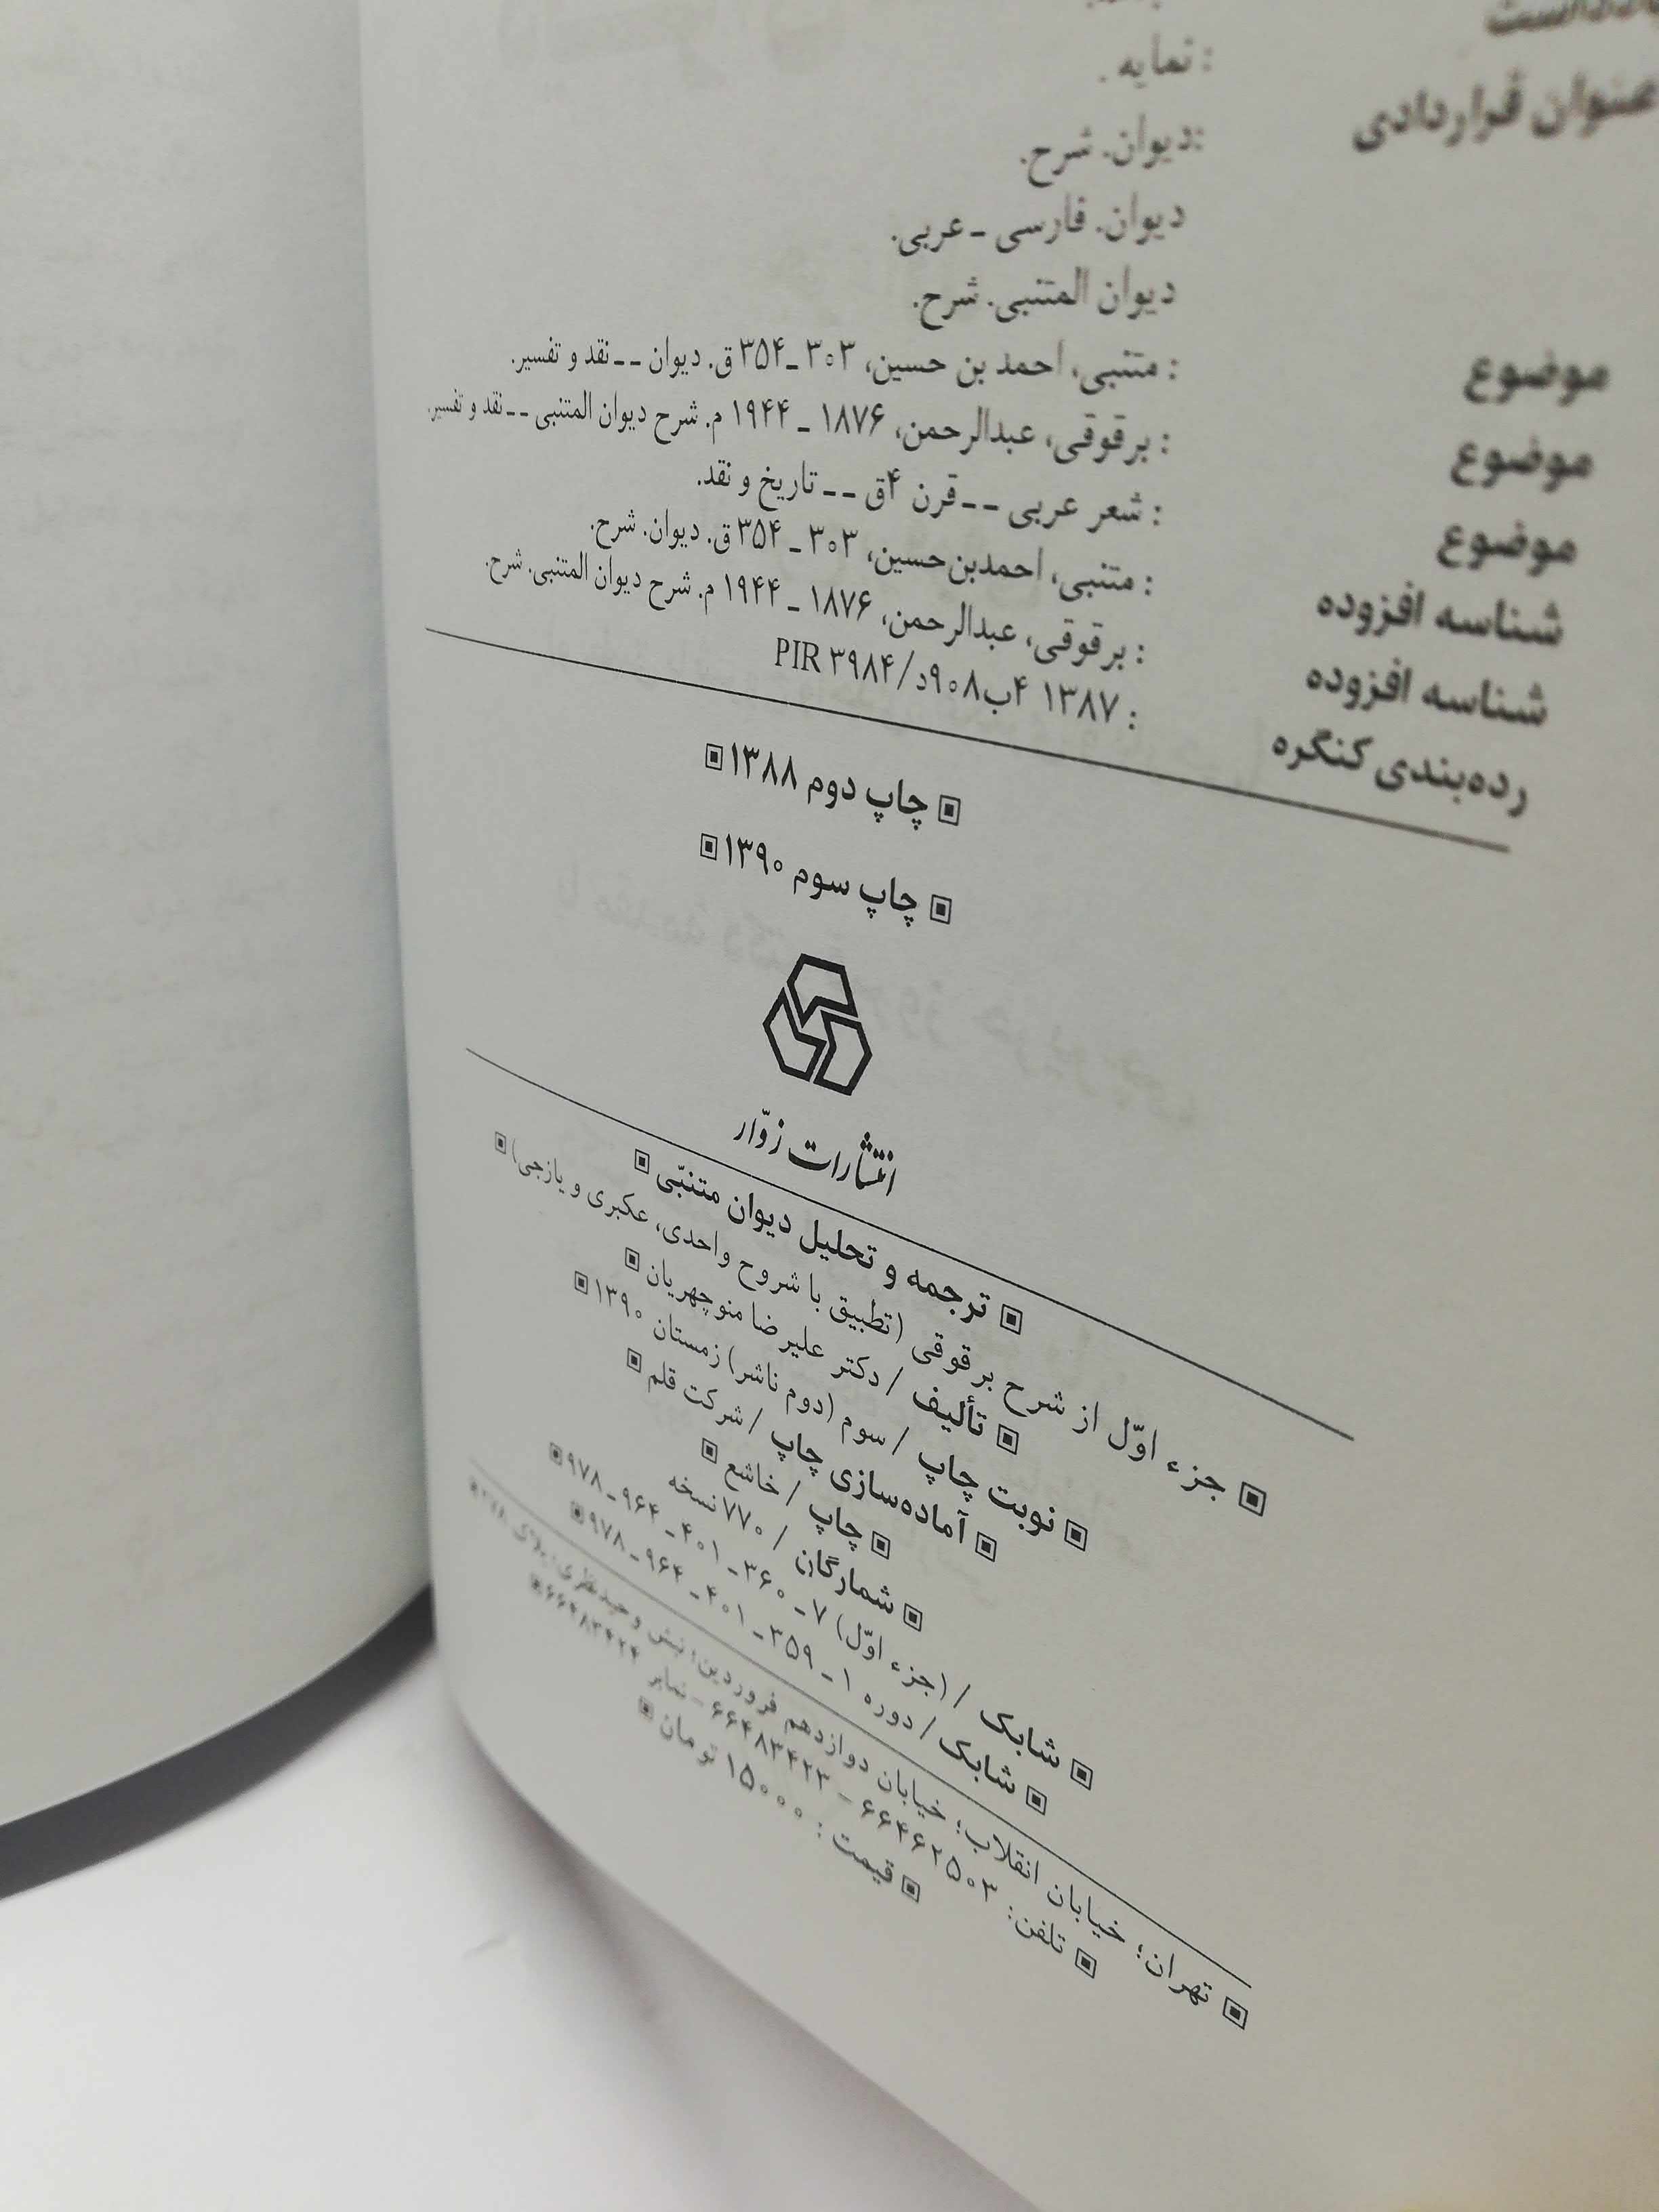 یادداشت
: نمایه .
عنوان قراردادی :دیوان. شرح.
دیوان. فارسی ـ عربی.
دیوان المتنبی. شرح.
موضوع : متنبی، احمد بن حسین، ۳۰۳ ـ ۳۵۴ ق. دیوان ــ نقد و تفسیر.
موضوع : برقوقی، عبدالرحمن، ۱۸۷۶ ـ ۱۹۴۴ م. شرح دیوان المتنبی ــ نقد و تفسیر.
موضوع : شعر عربی ــ قرن ۴ق ــ تاریخ و نقد.
شناسه افزوده : متنبی، احمدبن‌حسین، ۳۰۳ ـ ۳۵۴ ق. دیوان. شرح.
شناسه افزوده : برقوقی، عبدالرحمن، ۱۸۷۶ ـ ۱۹۴۴ م. شرح دیوان المتنبی. شرح.
رده‌بندی کنگره : ۱۳۸۷ ۴ب۹۰۸د/ PIR ۳۹۸۴
چاپ دوم ۱۳۸۸
چاپ سوم ۱۳۹۰
انتشارات زوّار
ترجمه و تحلیل دیوان متنبّی
جزء اوّل از شرح برقوقی (تطبیق با شروح واحدی، عکبری و یازجی)
تألیف / دکتر علیرضا منوچهریان
نوبت چاپ / سوم (دوم ناشر) زمستان ۱۳۹۰
آماده‌سازی چاپ / شرکت قلم
چاپ / خاشع
شمارگان / ۷۷۰ نسخه
شابک / (جزء اوّل) ۷ ـ ۳۶۰ ـ ۴۰۱ ـ ۹۶۴ ـ ۹۷۸
شابک / دوره ۱ ـ ۳۵۹ ـ ۴۰۱ ـ ۹۶۴ ـ ۹۷۸
تهران؛ خیابان انقلاب؛ خیابان دوازدهم فروردین؛ نبش وحیدنظری؛ پلاک ۲۷۸
تلفن: ۶۶۴۶۲۵۰۳ ـ ۶۶۴۸۳۴۲۳ ـ نمابر ۶۶۴۸۳۴۲۴
قیمت : ۱۵۰۰۰ تومان